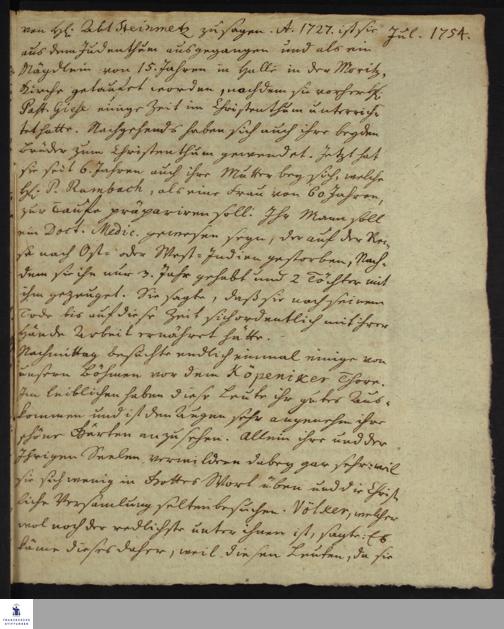 von H. Abt Steinmetz zu sagen. A. 1727. ist sie
Jul. 1754.
aus dem Judenthum ausgegangen und als ein
Mägdlein von 15. Jahren in Halle in der Moritz-
Kirche getauft worden, nachdem sie vorher H.
Past. Giese einige Zeit im Christenthum unterrich-
tet hatte. Nachgehends haben sich auch ihre beyden
Brüder zum Christenthum gewendet. Jetzt hat
sie seit 6. Jahren auch ihre Mutter bey sich, welche
H. P. Rambach, als eine Frau von 60 Jahren,
zur Taufe præpariren soll. Ihr Mann soll
ein Doct. Medic. gewesen seyn, der auf der Rei-
se nach Ost- oder West-Indien gestorben, Nach-
dem sie ihn nur 3. Jahr gehabt und 2 Töchter mit
ihm gezeuget. Sie sagte, daß sie nach seinem
Tode bis auf diese Zeit sich ordentlich mit ihrer
Hände Arbeit ernähret hätte.
Nachmittag besuchte endlich einmal einige von
unsern Böhmen vor dem Köpeniker Thore.
Im leiblichen haben diese Leute ihr gutes Aus-
kommen und ist den Augen sehr angenehm ihre
schöne Gärten anzusehen. Allein ihre und der
Ihrigen Seelen verwildern dabey gar sehr: weil
sie sich wenig in Gottes Wort üben und die Christ-
liche Versamlung selten besuchen. Völker, welcher
wol noch der redlichste unter ihnen ist, sagte: Es
käme dieses daher, weil diesen Leuten, da sie
FRANCKESCHE
STIFTUNGEN